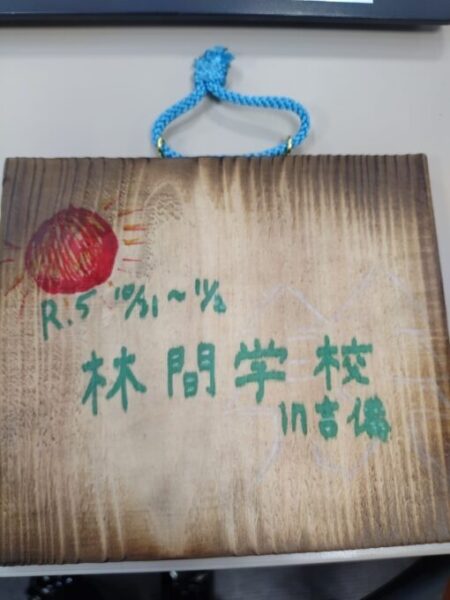 R.5 10/31~11/2
林間学校
in吉備